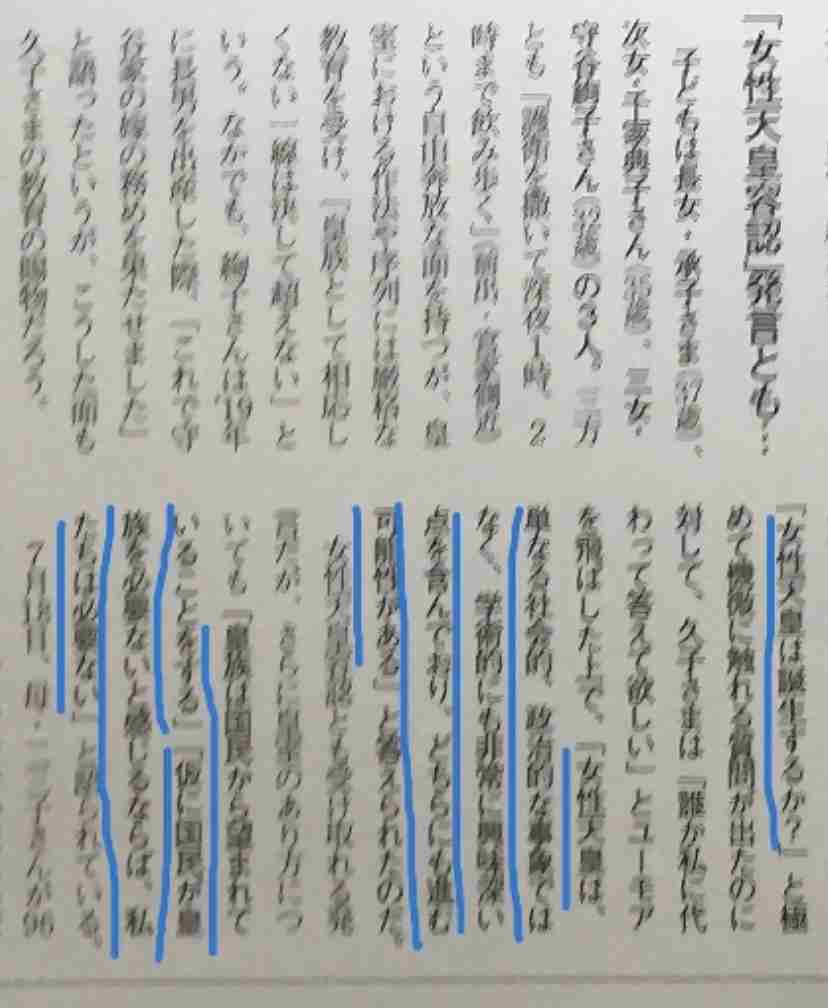 「女性天皇容認」発言とも…
子どもは長女・承子さま(37歳)、
次女・千家典子さん(35歳)、三女・
守谷絢子さん(33歳)の3人。三方
とも「護衛を撒いて深夜1時、2
時まで飲み歩く」(前出・宮家側近)
という自由奔放な面を持つが、皇
室における作法や序列には厳格な
教育を受け、「皇族として相応し
くない一線は決して超えない」と
いう。なかでも、絢子さんは'19年
に長男を出産した際、「これで守
谷家の嫁の務めを果たせました」
と語ったというが、こうした面も
久子さまの教育の賜物だろう。
「女性天皇は誕生するか?」と極
めて機微に触れる質問が出たのに
対して、久子さまは「誰か私に代
わって答えて欲しい」とユーモア
を飛ばした上で、「女性天皇は、
単なる社会的、政治的な事象では
なく、学術的にも非常に興味深い
点を含んでおり、どちらにも進む
可能性がある」と答えられたのだ。
女性天皇容認とも受け取れる発
言だが、さらに皇室のあり方につ
いても「皇族は国民から望まれて
いることをする」「仮に国民が皇
族を必要ないと感じるならば、私
たちは必要ない」と語られている。
7月18日、母・二三子さんが96